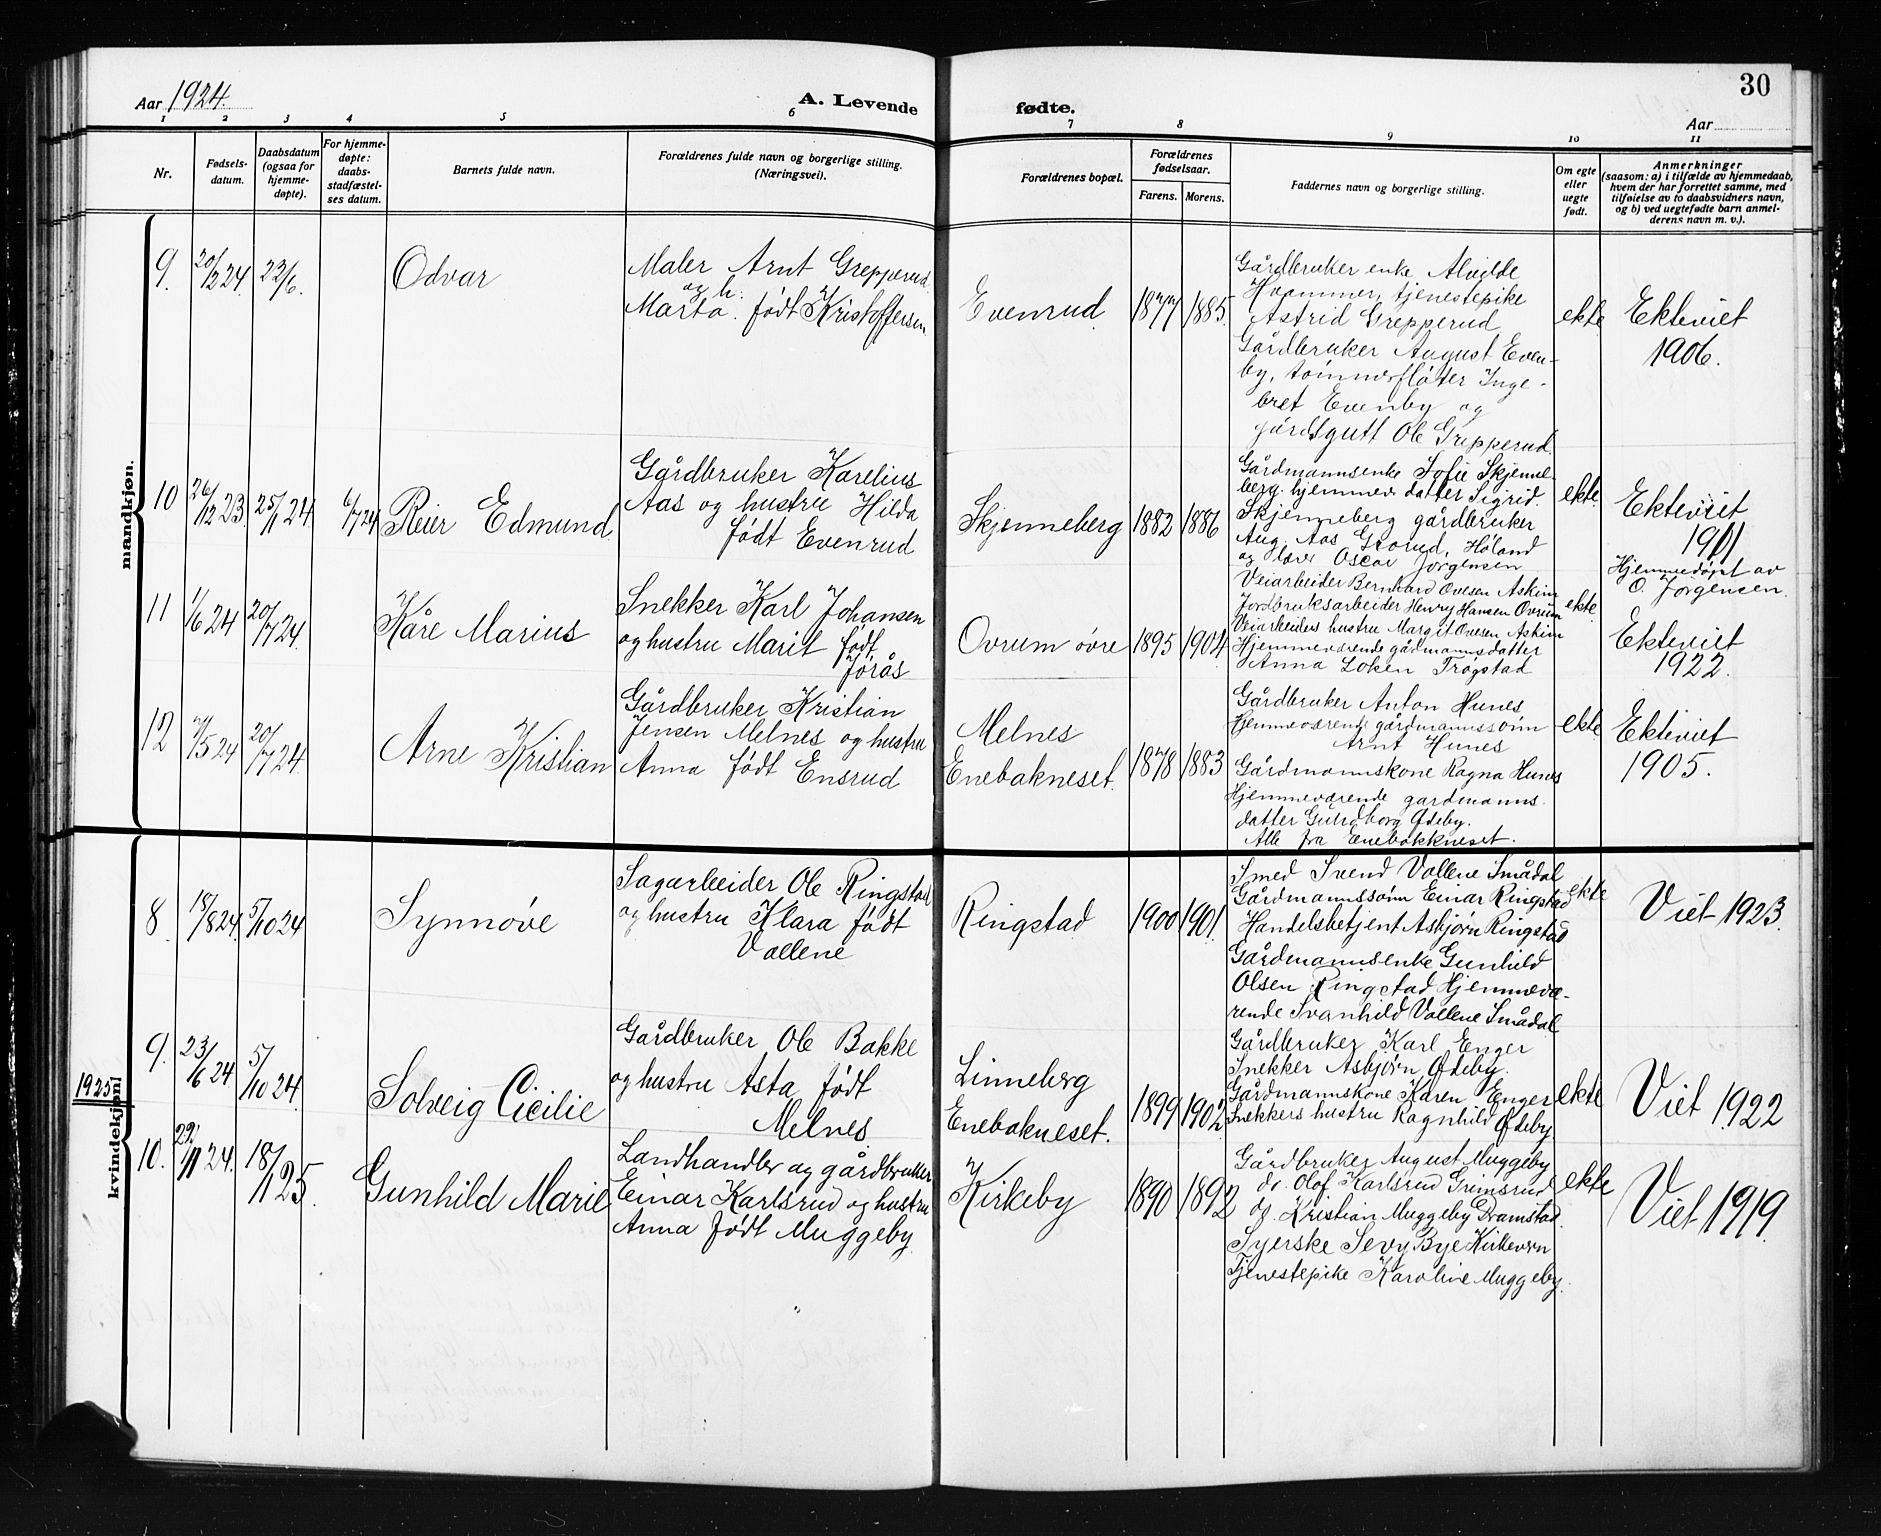 Aar 1924.
A. Levende fødte.
30
Aar
1 2 3 4 5 6 7 8 9 10 11
Nr.
Fødsels-
datum.
Daabsdatum
(ogsaa for
hjemme-
døpte).
For hjemme-
døpte:
daabs-
stadfæstel-
ses datum.
Barnets fulde navn.
Forældrenes fulde navn og borgerlige stilling.
(Næringsvei).
Forældrenes bopæl.
Forældrenes
fødselsaar.
Farens. Morens.
Faddernes navn og borgerlige stilling.
Om egte
eller
uegte
født.
Anmerkninger
(saasom: a) i tilfælde av hjemmedaab,
hvem der har forrettet samme, med
tilføielse av to daabsvidners navn,
og b) ved uegtefødte barn anmel-
derens navn m. v.).
mandkjøn.
9. 20/2 24. 22/6.
Odvar
Maler Arnt Grepperud
og h.
Marta. født Kristoffersen
Evenrud.
1877 1885.
Gårdbruker enke Alvilde
Hvammer, tjenestepike
Astrid Grepperud
Gårdbruker August Even-
by, tømmerfløter Inge-
bret Evenby og
gårdsgutt Ole Grepperud.
ekte
Ekteviet
1906.
10 26/12 23. 25/1 24 6/7 24
Reier Edmund
Gårdbruker Karelius
Aas og hustru Hilda
født Evenrud
Skjenneberg
1882 1886
Gårdmannsenke Sofie Skjenne-
berg. hjemmev datter Sigrid.
Skjenneberg gårdbruker
Aug. Aas Høland
og lærer Oscar Jørgensen
ekte.
Ekteviet
1911
Hjemmedøpt av
O. Jørgensen.
11 1/6 24 20/7 24.
Kåre Marius
Snekker Karl Johansen
og hustru Marit født
Jørås
Ovrum øvre
1895 1904
Veiarbeider Bernhard Ovesen Askim
Jordbruksarbeider Henry Hansen Ovrum
Veiarbeiders hustru Margit Ovesen Askim
Hjemmeværende gårdmannsdatter
Anna Løken Trøgstad
ekte.
Ekteviet
1922.
12 7/5 24 20/7 24.
Arne Kristian
Gårdbruker Kristian
Jensen Melnes og hustru
Anna født Ensrud
Melnes
Enebakneset.
1878 1883
Gårdbruker Anton Hunes
Hjemmeværende gårdmannssønn
Arnt Hunes
Gårdmannskone Ragna Hunes
Hjemmeværende gardmanns-
datter Guldborg Ødeby.
Alle fra Enebakkneset.
ekte.
Ekteviet
1905.
kvindekjøn.
8. 18/8 24. 5/10 24
Synnøve
Sagarbeider Ole Ringstad
og hustru Klara født
Vallene
Ringstad
1900 1901.
Smed Svend Vallene Smådal
Gårdmannssønn Einar Ringstad
Handelsbetjent Asbjørn Ringstad
Gårdmannsenke Gunhild
Olsen Ringstad Hjemmevæ-
rende Svanhild Vallene Smådal
ekte
Viet 1923.
9. 23/6 24 5/10 24.
Solveig Cicilie
Gårdbruker Ole Bakke
og hustru Asta født
Melnes
Linneberg
Enebakneset.
1899 1902
Gårdbruker Karl Enger
Snekker Asbjørn Ødeby.
Gårdmannskone Karen Enger
Snekkers hustru Ragnhild Ødeby.
ekte
Viet 1922
1925
10. 29/11 24. 18/1 25.
Gunhild Marie
Landhandler og gårdbruker
Einar Karlsrud og hustru
Anna født Muggeby.
Kirkeby
1890 1892
Gårdbruker August Muggeby
do. Olof Karlsrud Grimsrud
do. Kristian Muggeby Dramstad.
Syerske Sevy Bye
Tjenestepike Karoline Muggeby.
ekte
Viet 1919.